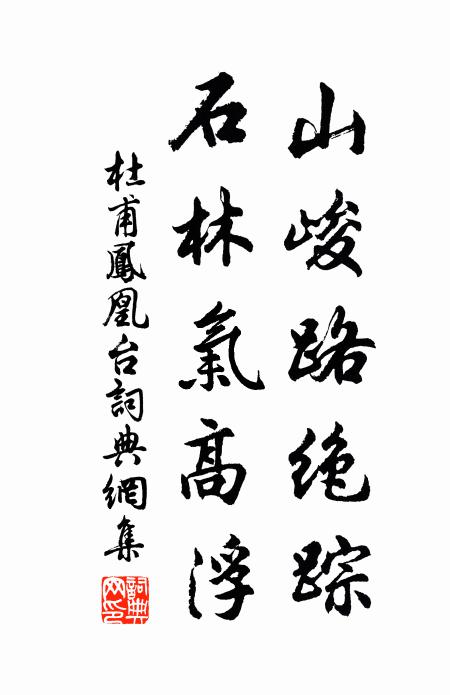 山峻路绝踪
石林氣高浮
杜甫鳳凰台詞典網集